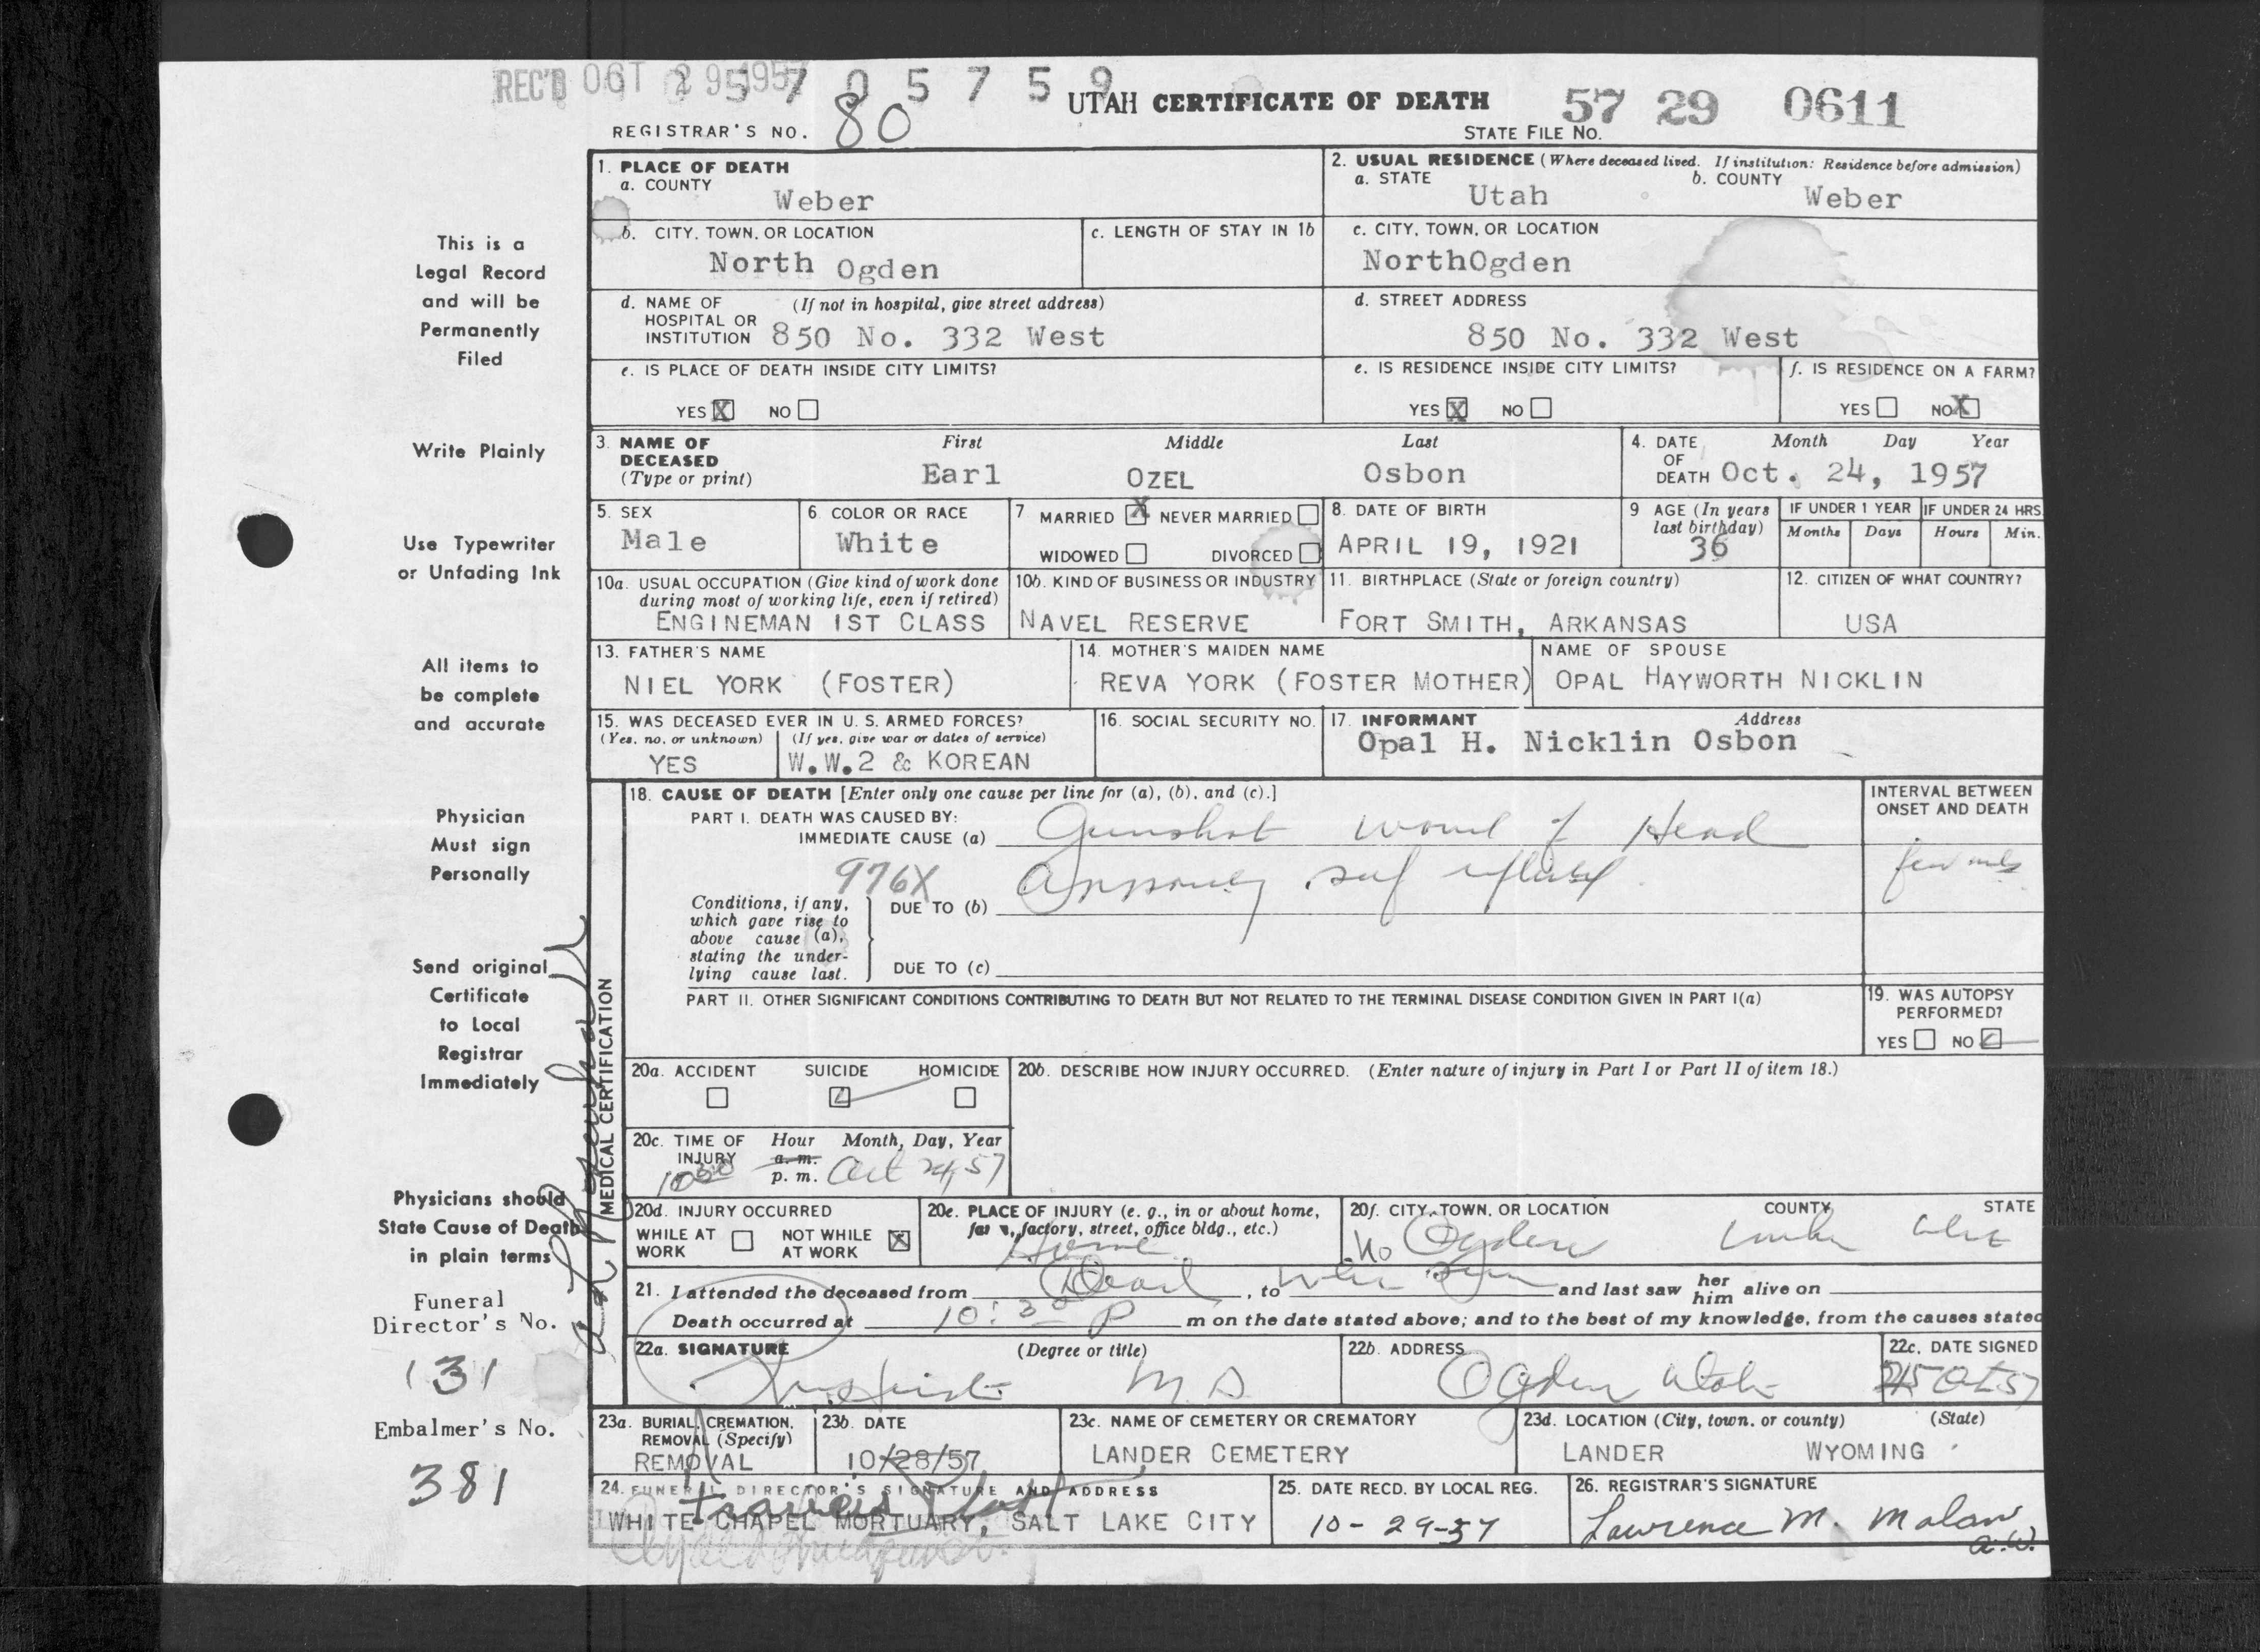 REC'D OCT 29 1957
5 7 0 5 7 5 9
UTAH CERTIFICATE OF DEATH
57 29 0611
REGISTRAR'S NO. 80
STATE FILE NO.
This is a
Legal Record
and will be
Permanently
Filed
Write Plainly
Use Typewriter
or Unfading Ink
All items to
be complete
and accurate
Physician
Must sign
Personally
Send original
Certificate
to Local
Registrar
Immediately
Physicians should
State Cause of Death
in plain terms
Funeral
Director's No.
131
Embalmer's No.
381
1. PLACE OF DEATH
a. COUNTY
Weber
2. USUAL RESIDENCE (Where deceased lived. If institution: Residence before admission)
a. STATE b. COUNTY
Utah Weber
b. CITY, TOWN, OR LOCATION
North Ogden
c. LENGTH OF STAY IN 1b
c. CITY, TOWN, OR LOCATION
NorthOgden
d. NAME OF (If not in hospital, give street address)
HOSPITAL OR
INSTITUTION 850 No. 332 West
d. STREET ADDRESS
850 No. 332 West
e. IS PLACE OF DEATH INSIDE CITY LIMITS?
YES X NO
e. IS RESIDENCE INSIDE CITY LIMITS?
YES X NO
f. IS RESIDENCE ON A FARM?
YES NO X
3. NAME OF First Middle Last
DECEASED
(Type or print) Earl OZEL Osbon
4. DATE Month Day Year
OF
DEATH Oct. 24, 1957
5. SEX
Male
6. COLOR OR RACE
White
7 MARRIED X NEVER MARRIED
WIDOWED DIVORCED
8. DATE OF BIRTH
APRIL 19, 1921
9 AGE (In years
last birthday)
36
IF UNDER 1 YEAR
Months Days
IF UNDER 24 HRS
Hours Min.
10a. USUAL OCCUPATION (Give kind of work done
during most of working life, even if retired)
ENGINEMAN 1ST CLASS
10b. KIND OF BUSINESS OR INDUSTRY
NAVEL RESERVE
11. BIRTHPLACE (State or foreign country)
FORT SMITH, ARKANSAS
12. CITIZEN OF WHAT COUNTRY?
USA
13. FATHER'S NAME
NIEL YORK (FOSTER)
14. MOTHER'S MAIDEN NAME
REVA YORK (FOSTER MOTHER)
NAME OF SPOUSE
OPAL HAYWORTH NICKLIN
15. WAS DECEASED EVER IN U. S. ARMED FORCES?
(Yes, no, or unknown) (If yes, give war or dates of service)
YES W.W.2 & KOREAN
16. SOCIAL SECURITY NO.
17. INFORMANT Address
Opal H. Nicklin Osbon
MEDICAL CERTIFICATION
18. CAUSE OF DEATH [Enter only one cause per line for (a), (b), and (c).]
INTERVAL BETWEEN
ONSET AND DEATH
PART I. DEATH WAS CAUSED BY:
IMMEDIATE CAUSE (a) Gunshot wound of Head
976X
self
few
Conditions, if any,
which gave rise to
above cause (a),
stating the under-
lying cause last.
DUE TO (b)
DUE TO (c)
PART II. OTHER SIGNIFICANT CONDITIONS CONTRIBUTING TO DEATH BUT NOT RELATED TO THE TERMINAL DISEASE CONDITION GIVEN IN PART I(a)
19. WAS AUTOPSY
PERFORMED?
YES NO
20a. ACCIDENT SUICIDE HOMICIDE
20b. DESCRIBE HOW INJURY OCCURRED. (Enter nature of injury in Part I or Part II of item 18.)
20c. TIME OF Hour Month, Day, Year
INJURY a. m.
1030 p. m. Oct 24, 57
20d. INJURY OCCURRED
WHILE AT WORK NOT WHILE AT WORK X
20e. PLACE OF INJURY (e. g., in or about home,
farm, factory, street, office bldg., etc.)
Home
20f. CITY, TOWN, OR LOCATION COUNTY STATE
No Ogden Weber Utah
21. I attended the deceased from Dead, to when seen and last saw her him alive on
Death occurred at 10:30 P m on the date stated above; and to the best of my knowledge, from the causes stated
22a. SIGNATURE (Degree or title)
M.D.
22b. ADDRESS
Ogden Utah
22c. DATE SIGNED
Oct 57
23a. BURIAL, CREMATION,
REMOVAL (Specify)
REMOVAL
23b. DATE
10/28/57
23c. NAME OF CEMETERY OR CREMATORY
LANDER CEMETERY
23d. LOCATION (City, town, or county) (State)
LANDER WYOMING
24. FUNERAL DIRECTOR'S SIGNATURE AND ADDRESS
WHITE CHAPEL MORTUARY, SALT LAKE CITY
25. DATE RECD. BY LOCAL REG.
10-29-57
26. REGISTRAR'S SIGNATURE
Lawrence M. Malan
a.w.